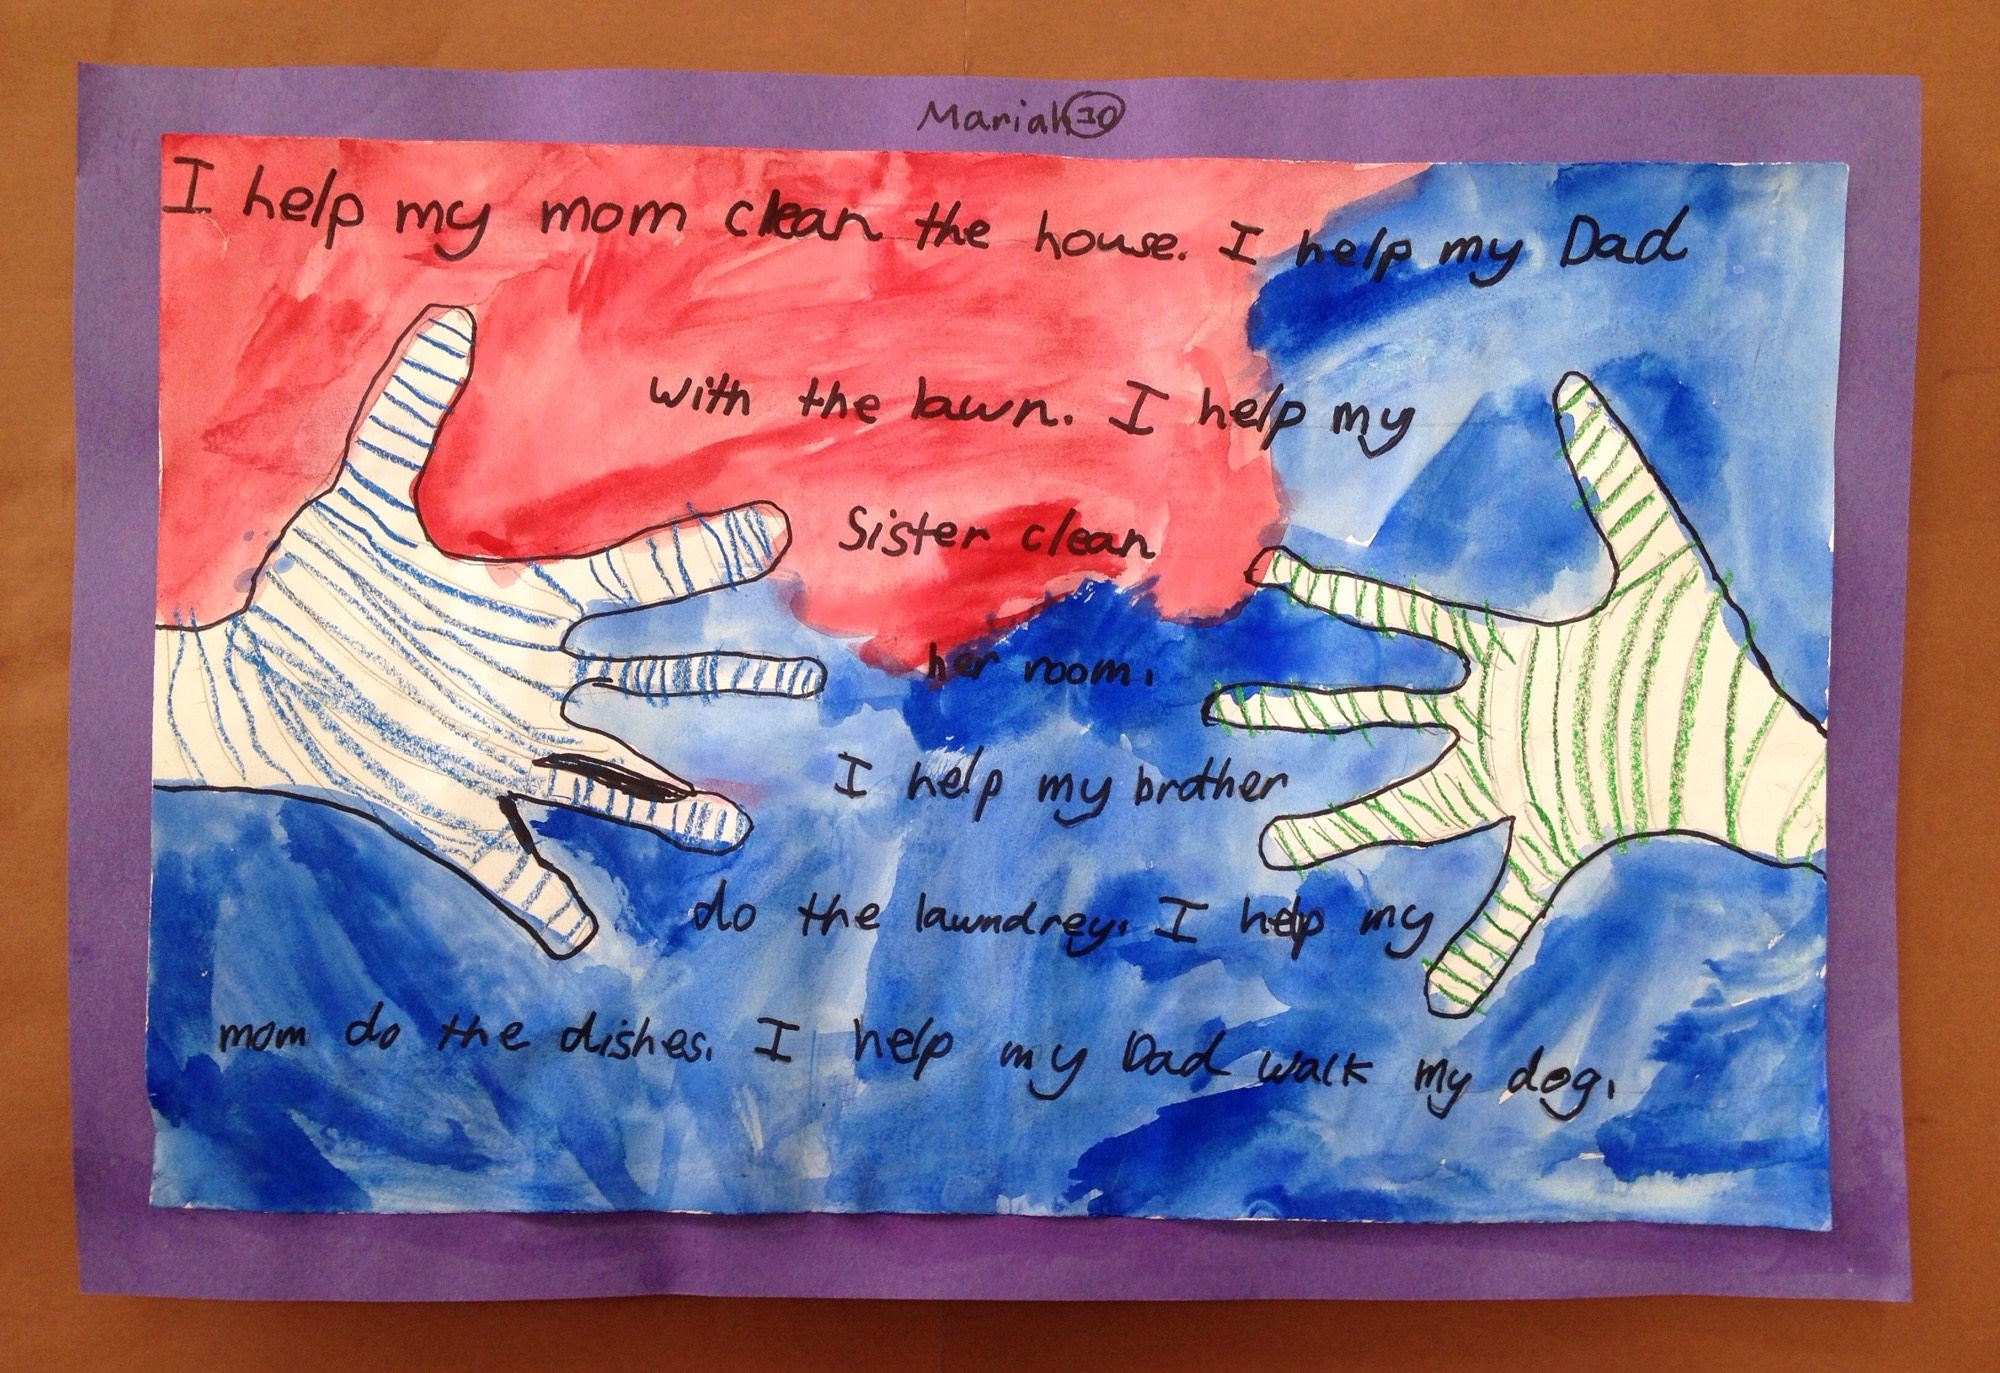 Mariah 30
I help my mom clean the house. I help my Dad
with the lawn. I help my
Sister clean
her room.
I help my brother
do the lawndrey. I help my
mom do the dishes. I help my Dad walk my dog.